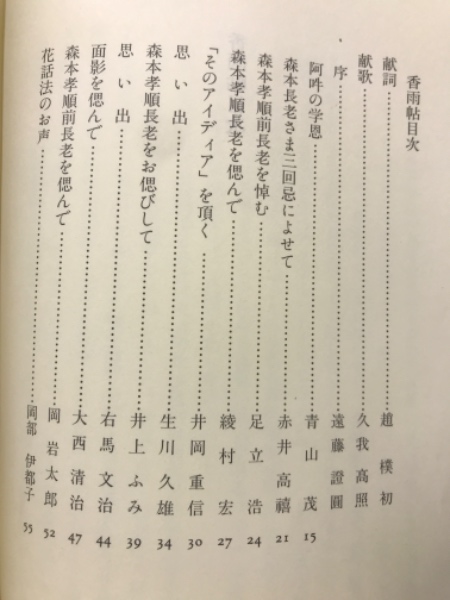 香雨帖目次
献詞……趙樸初
献歌……久我高照
序……遠藤證圓
阿吽の学恩……青山茂 15
森本長老さま三回忌によせて……赤井高禧 21
森本孝順前長老を悼む……足立浩 24
森本孝順長老を偲んで……綾村宏 27
「そのアイディア」を頂く……井岡重信 30
思い出……生川久雄 34
森本孝順長老をお偲びして……井上ふみ 39
思い出……右馬文治 44
面影を偲んで……大西清治 47
森本孝順前長老を偲んで……岡岩太郎 52
花話法のお声……岡部伊都子 55